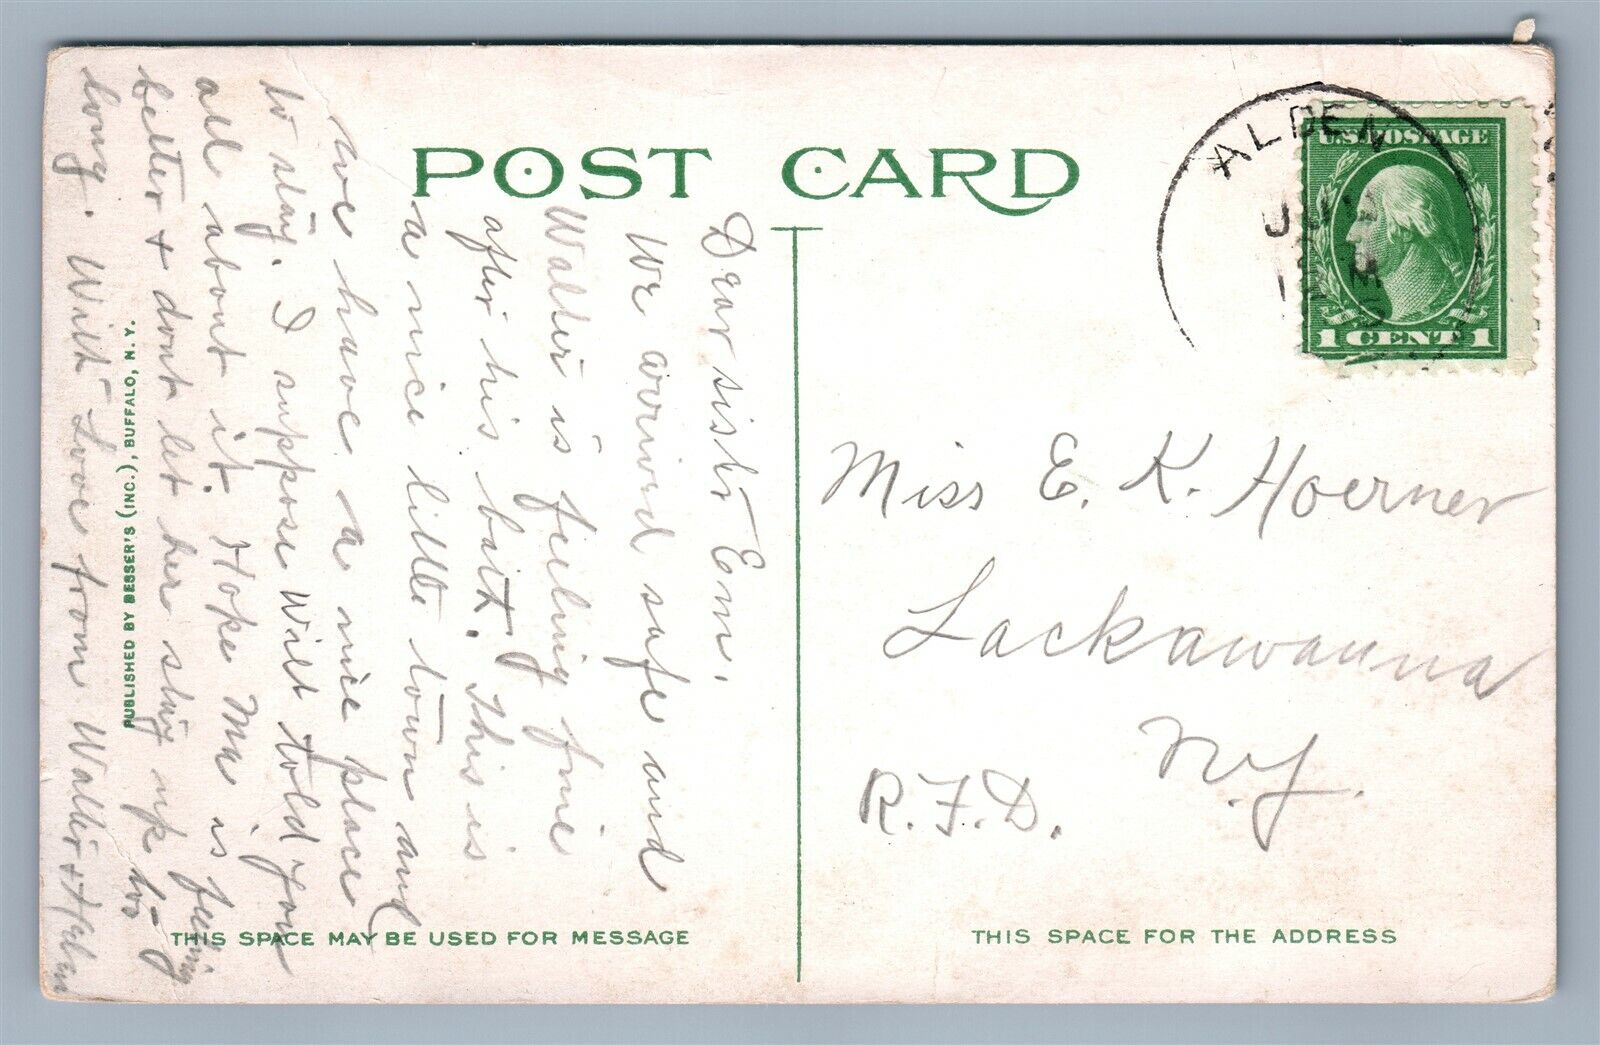 POST CARD
ALDEN
U.S. POSTAGE
1 CENT 1
Dear sister Em.
We arrived safe and
Walter is feeling fine
after his bath. This is
a nice little town and
we have a nice place
to stay. I suppose Will told you
all about it. Hope Ma is feeling
better + dont let her stay up to
long. With Love from Walter + Helen
Miss E. K. Hoerner
Lackawanna
N.Y.
R.F.D.
PUBLISHED BY BESSER'S (INC.), BUFFALO, N. Y.
THIS SPACE MAY BE USED FOR MESSAGE
THIS SPACE FOR THE ADDRESS